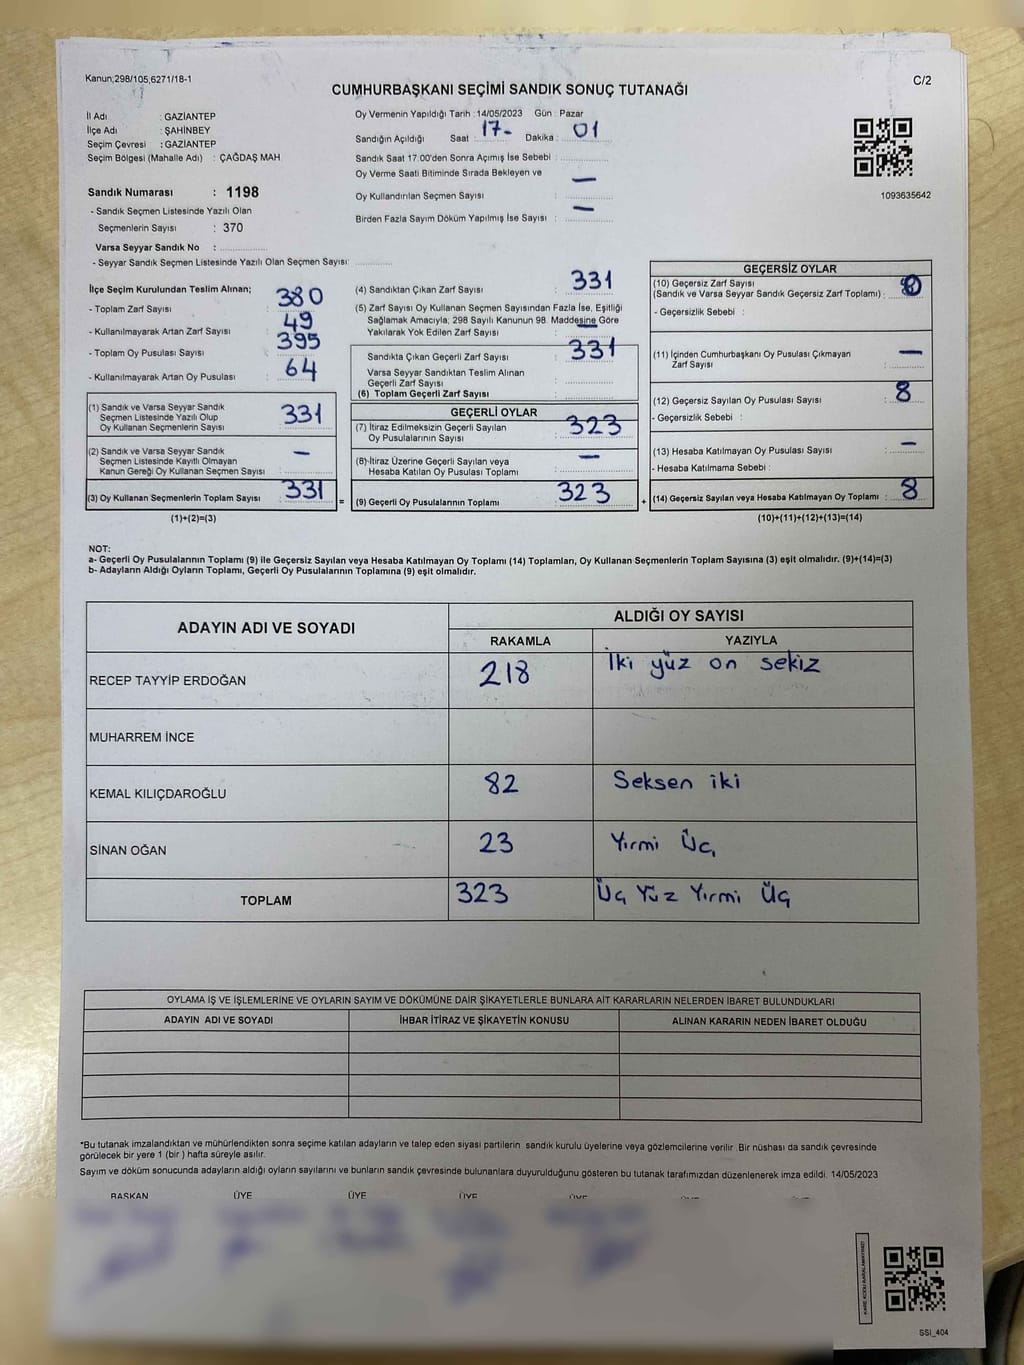 Kanun;298/105;6271/18-1
C/2
CUMHURBAŞKANI SEÇİMİ SANDIK SONUÇ TUTANAĞI
İl Adı : GAZİANTEP
İlçe Adı : ŞAHİNBEY
Seçim Çevresi : GAZİANTEP
Seçim Bölgesi (Mahalle Adı) : ÇAĞDAŞ MAH
Sandık Numarası : 1198
- Sandık Seçmen Listesinde Yazılı Olan
Seçmenlerin Sayısı : 370
Varsa Seyyar Sandık No :
- Seyyar Sandık Seçmen Listesinde Yazılı Olan Seçmen Sayısı:
Oy Vermenin Yapıldığı Tarih :14/05/2023 Gün : Pazar
Sandığın Açıldığı Saat : 17- Dakika : 01
Sandık Saat 17:00'den Sonra Açımış İse Sebebi :
Oy Verme Saati Bitiminde Sırada Bekleyen ve
Oy Kullandırılan Seçmen Sayısı : —
Birden Fazla Sayım Döküm Yapılmış İse Sayısı : —
1093635642
İlçe Seçim Kurulundan Teslim Alınan;
- Toplam Zarf Sayısı : 380
- Kullanılmayarak Artan Zarf Sayısı : 49
- Toplam Oy Pusulası Sayısı : 395
- Kullanılmayarak Artan Oy Pusulası : 64
(1) Sandık ve Varsa Seyyar Sandık
Seçmen Listesinde Yazılı Olup
Oy Kullanan Seçmenlerin Sayısı : 331
(2) Sandık ve Varsa Seyyar Sandık
Seçmen Listesinde Kayıtlı Olmayan
Kanun Gereği Oy Kullanan Seçmen Sayısı : —
(3) Oy Kullanan Seçmenlerin Toplam Sayısı : 331
(1)+(2)=(3)
(4) Sandıktan Çıkan Zarf Sayısı : 331
(5) Zarf Sayısı Oy Kullanan Seçmen Sayısından Fazla İse, Eşitliği
Sağlamak Amacıyla; 298 Sayılı Kanunun 98. Maddesine Göre
Yakılarak Yok Edilen Zarf Sayısı : —
Sandıkta Çıkan Geçerli Zarf Sayısı : 331
Varsa Seyyar Sandıktan Teslim Alınan
Geçerli Zarf Sayısı :
(6) Toplam Geçerli Zarf Sayısı :
GEÇERLİ OYLAR
(7) İtiraz Edilmeksizin Geçerli Sayılan
Oy Pusulalarının Sayısı : 323
(8)-İtiraz Üzerine Geçerli Sayılan veya
Hesaba Katılan Oy Pusulası Toplamı : —
= (9) Geçerli Oy Pusulalarının Toplamı : 323
GEÇERSİZ OYLAR
(10) Geçersiz Zarf Sayısı
(Sandık ve Varsa Seyyar Sandık Geçersiz Zarf Toplamı) :
- Geçersizlik Sebebi :
(11) İçinden Cumhurbaşkanı Oy Pusulası Çıkmayan
Zarf Sayısı : —
(12) Geçersiz Sayılan Oy Pusulası Sayısı : 8
- Geçersizlik Sebebi :
(13) Hesaba Katılmayan Oy Pusulası Sayısı : —
- Hesaba Katılmama Sebebi :
+ (14) Geçersiz Sayılan veya Hesaba Katılmayan Oy Toplamı : 8
(10)+(11)+(12)+(13)=(14)
NOT:
a- Geçerli Oy Pusulalarının Toplamı (9) ile Geçersiz Sayılan veya Hesaba Katılmayan Oy Toplamı (14) Toplamları, Oy Kullanan Seçmenlerin Toplam Sayısına (3) eşit olmalıdır. (9)+(14)=(3)
b- Adayların Aldığı Oyların Toplamı, Geçerli Oy Pusulalarının Toplamına (9) eşit olmalıdır.
ADAYIN ADI VE SOYADI ALDIĞI OY SAYISI
RAKAMLA YAZIYLA
RECEP TAYYİP ERDOĞAN 218 İki yüz on sekiz
MUHARREM İNCE
KEMAL KILIÇDAROĞLU 82 Seksen iki
SİNAN OĞAN 23 Yirmi Üç
TOPLAM 323 Üç Yüz Yirmi Üç
OYLAMA İŞ VE İŞLEMLERİNE VE OYLARIN SAYIM VE DÖKÜMÜNE DAİR ŞİKAYETLERLE BUNLARA AİT KARARLARIN NELERDEN İBARET BULUNDUKLARI
ADAYIN ADI VE SOYADI İHBAR İTİRAZ VE ŞİKAYETİN KONUSU ALINAN KARARIN NEDEN İBARET OLDUĞU
*Bu tutanak imzalandıktan ve mühürlendikten sonra seçime katılan adayların ve talep eden siyasi partilerin sandık kurulu üyelerine veya gözlemcilerine verilir. Bir nüshası da sandık çevresinde
görülecek bir yere 1 (bir ) hafta süreyle asılır.
Sayım ve döküm sonucunda adayların aldığı oyların sayılarını ve bunların sandık çevresinde bulunanlara duyurulduğunu gösteren bu tutanak tarafımızdan düzenlenerek imza edildi. 14/05/2023
BAŞKAN ÜYE ÜYE ÜYE ÜYE
KARE KODU KARALAMAYINIZ!
SSI_404